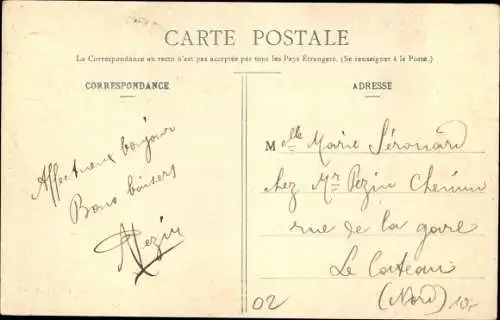 CARTE POSTALE
La Correspondance au recto n'est pas acceptée par tous les Pays Étrangers. (Se renseigner à la Poste.)
CORRESPONDANCE
Affectueux bonjour
Bons baisers
APezin
ADRESSE
Melle Marie Sérouard
chez Mr Pezin Chemin
rue de la gare
Le Cateau
(Nord)
02
10,-